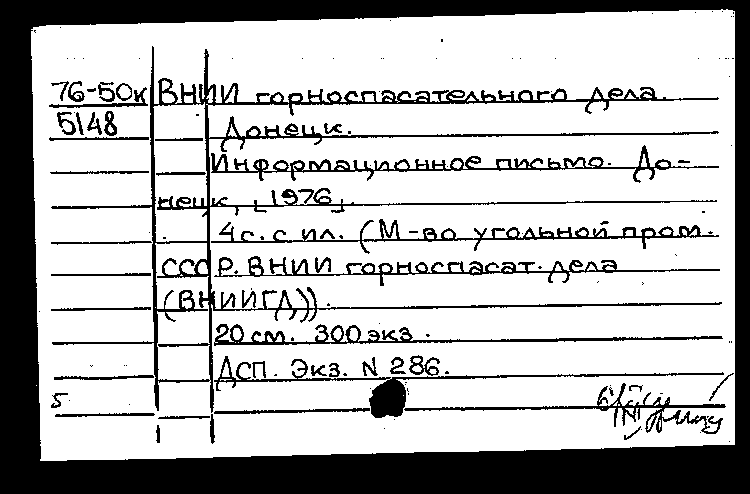 76-50к ВНИИ горноспасательного дела.
5148 Донецк.
Информационное письмо. До-
нецк, [1976].
4с. с ил. (М-во угольной пром.
СССР. ВНИИ горноспасат. дела
(ВНИИГД)).
20 см. 300 экз.
ДСП. Экз. N 286.
5